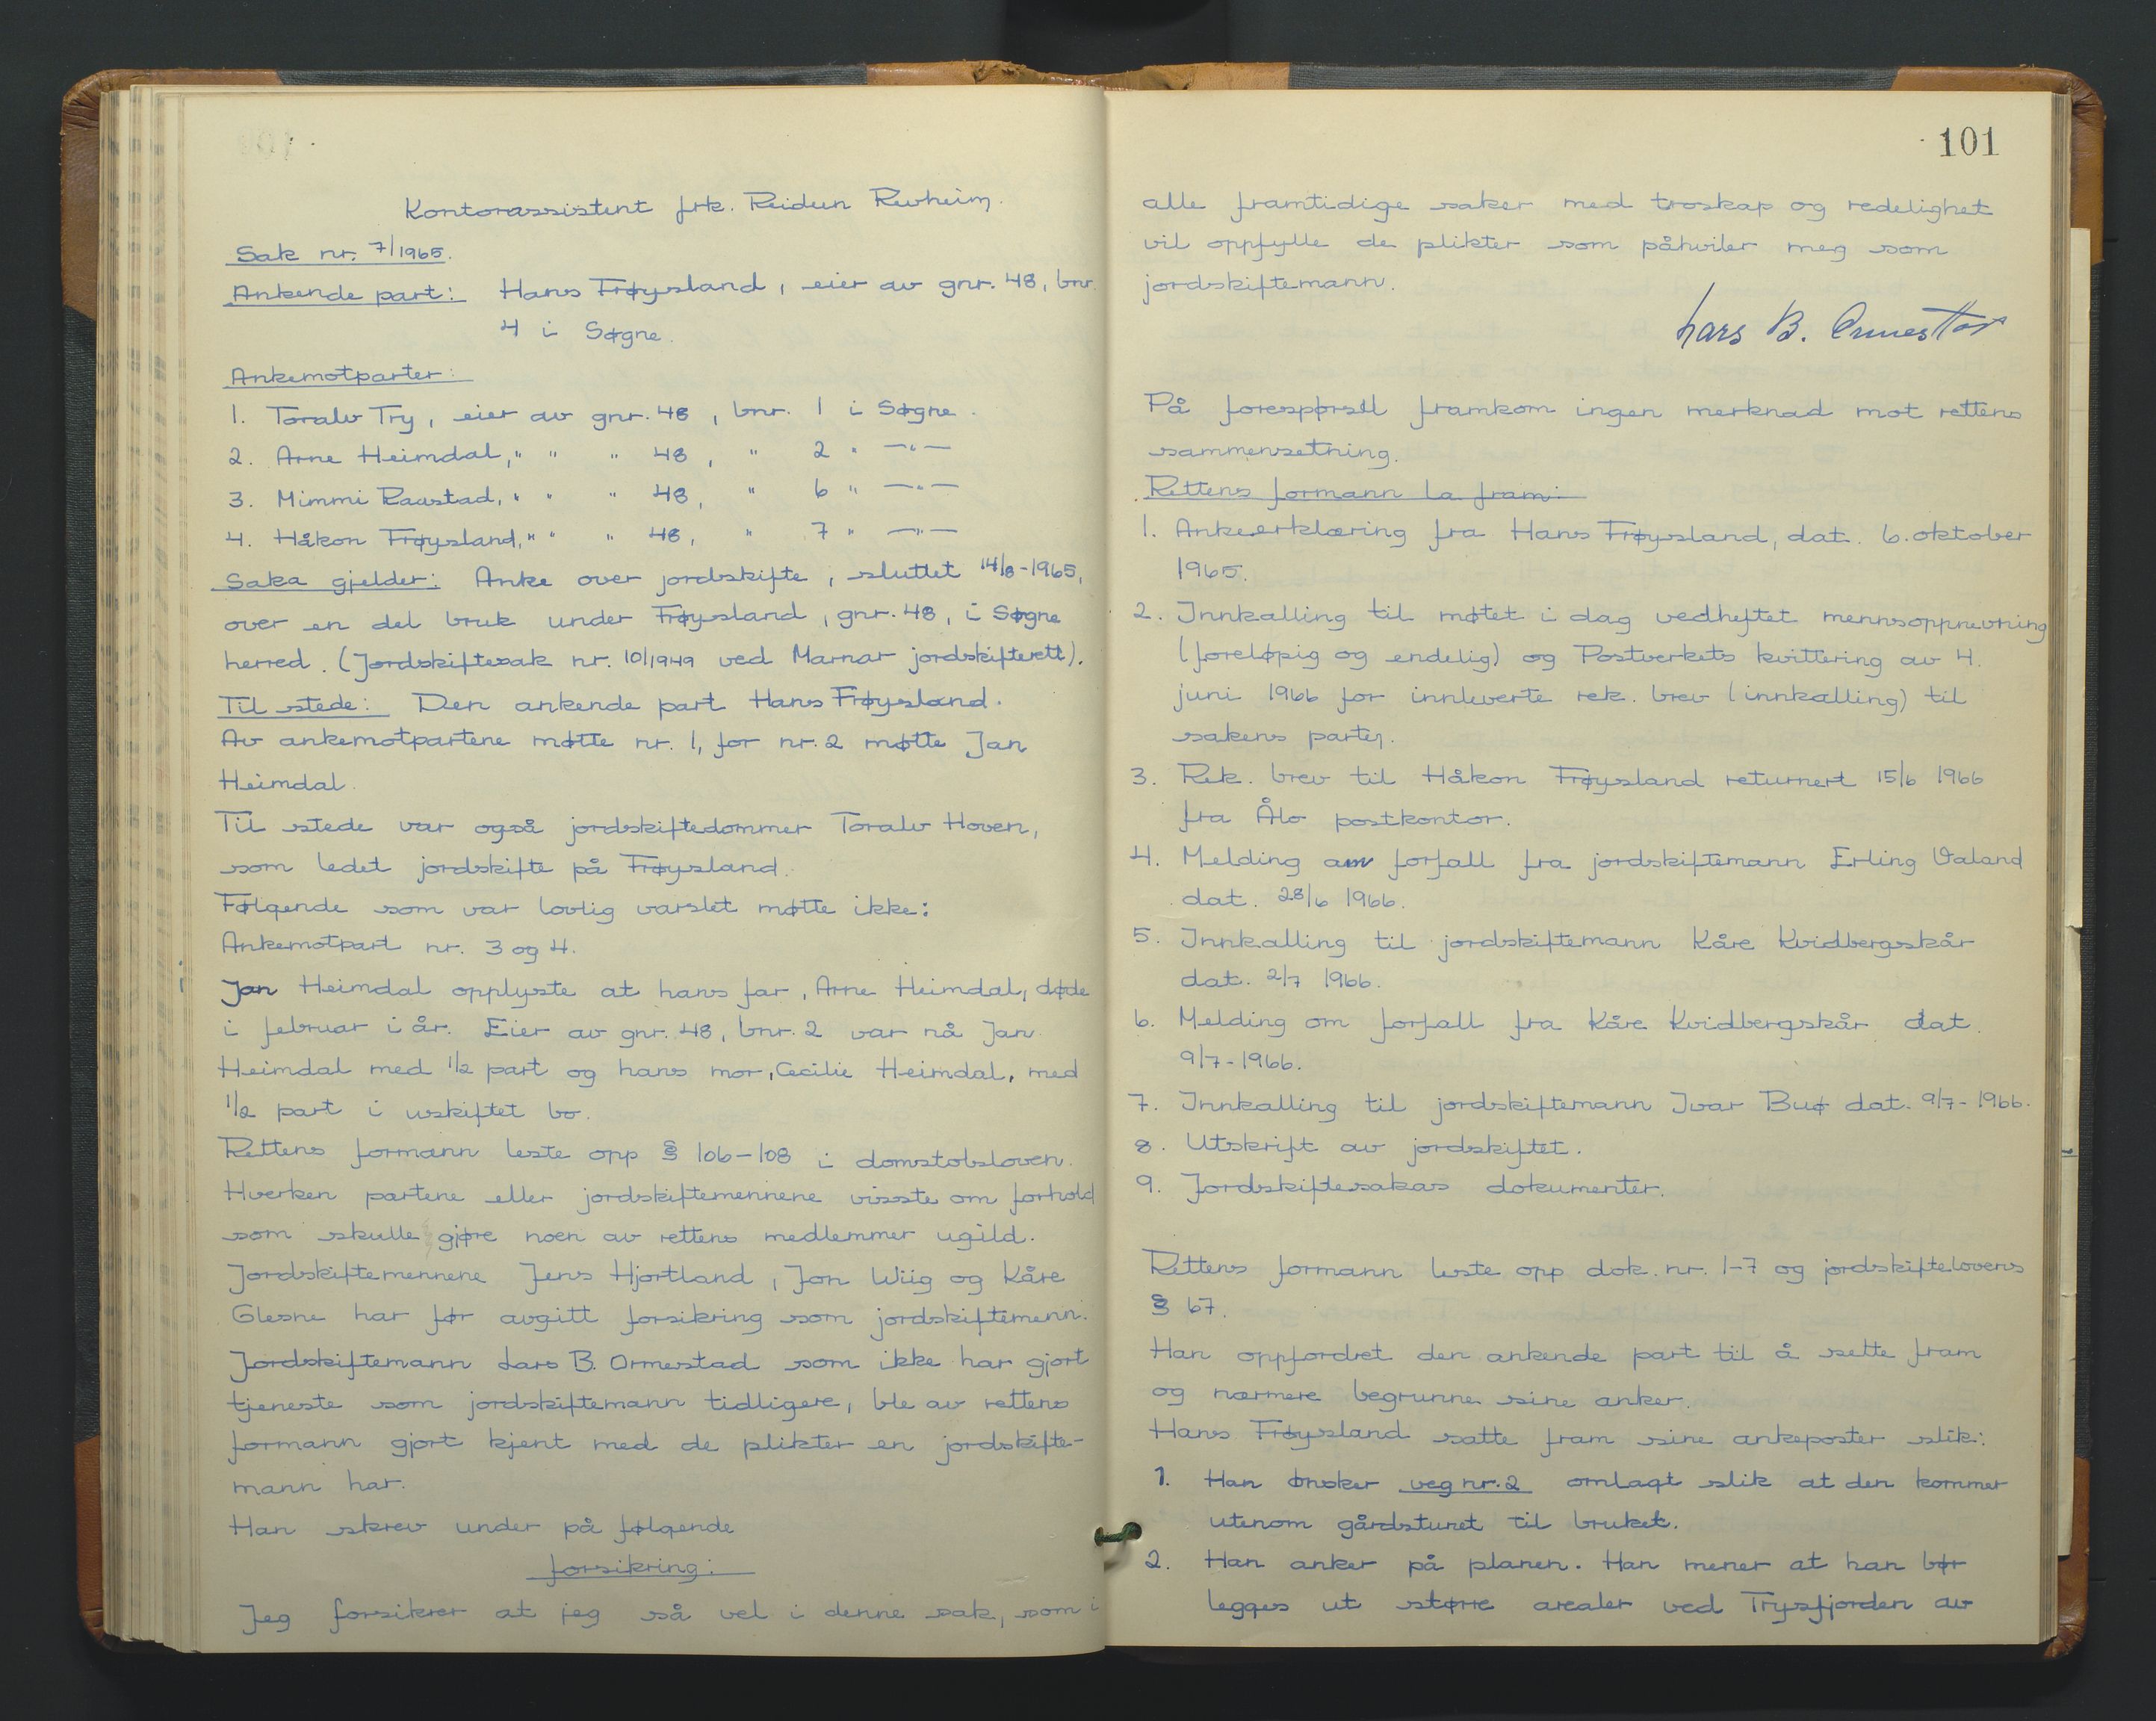 Kontorassistent frk. Reidun Revheim.
Sak nr. 7/1965.
Ankende part: Hans Frøysland, eier av gnr. 48, bnr.
4 i Søgne.
Ankemotparter:
1. Toralv Try, eier av gnr. 48, bnr. 1 i Søgne.
2. Arne Heimdal, " " " 48, " 2 " —"—
3. Mimmi Raustad, " " " 48, " 6 " —"—
4. Håkon Frøysland, " " " 48, " 7 " —"—
Saka gjelder: Anke over jordskifte, sluttet 14/8-1965,
over en del bruk under Frøysland, gnr. 48, i Søgne
herred. (Jordskiftesak nr. 10/1949 ved Marnar jordskifterett).
Til stede: Den ankende part Hans Frøysland.
Av ankemotpartene møtte nr. 1, for nr. 2 møtte Jan
Heimdal.
Til stede var også jordskiftedommer Toralv Hoven,
som ledet jordskifte på Frøysland.
Følgende som var lovlig varslet møtte ikke:
Ankemotpart nr. 3 og 4.
Jan Heimdal opplyste at hans far, Arne Heimdal, døde
i februar i år. Eier av gnr. 48, bnr. 2 var nå Jan
Heimdal med 1/2 part og hans mor, Cecilie Heimdal, med
1/2 part i uskiftet bo.
Rettens formann leste opp § 106-108 i domstolsloven.
Hverken partene eller jordskiftemennene visste om forhold
som skulle gjøre noen av rettens medlemmer ugild.
Jordskiftemennene Jens Hjortland, Jon Wiig og Kåre
Glesne har før avgitt forsikring som jordskiftemenn.
Jordskiftemann Lars B. Ormestad som ikke har gjort
tjeneste som jordskiftemann tidligere, ble av rettens
formann gjort kjent med de plikter en jordskifte-
mann har.
Han skrev under på følgende
forsikring:
Jeg forsikrer at jeg så vel i denne sak, som i
101
alle framtidige saker med troskap og redelighet
vil oppfylle de plikter som påhviler meg som
jordskiftemann.
Lars B. Ormestad
På forespørsel framkom ingen merknad mot rettens
sammensetning.
Rettens formann la fram:
1. Ankeerklæring fra Hans Frøysland, dat. 6. oktober
1965.
2. Innkalling til møtet i dag vedheftet mennsoppnevning
(foreløpig og endelig) og Postverkets kvittering av 4.
juni 1966 for innleverte rek. brev (innkalling) til
sakens parter.
3. Rek. brev til Håkon Frøysland returnert 15/6 1966
fra Ålo postkontor.
4. Melding om forfall fra jordskiftemann Erling Valand
dat. 28/6 1966.
5. Innkalling til jordskiftemann Kåre Kvidbergskår
dat. 2/7 1966.
6. Melding om forfall fra Kåre Kvidbergskår dat.
9/7-1966.
7. Innkalling til jordskiftemann Ivar Buø dat. 9/7-1966.
8. Utskrift av jordskiftet.
9. Jordskiftesakas dokumenter.
Rettens formann leste opp dok. nr. 1-7 og jordskiftelovens
§ 67.
Han oppfordret den ankende part til å sette fram
og nærmere begrunne sine anker.
Hans Frøysland satte fram sine ankeposter slik:
1. Han ønsker veg nr. 2 omlagt slik at den kommer
utenom gårdstunet til bruket.
2. Han anker på planen. Han mener at han bør
legges ut større arealer ved Trysfjorden av